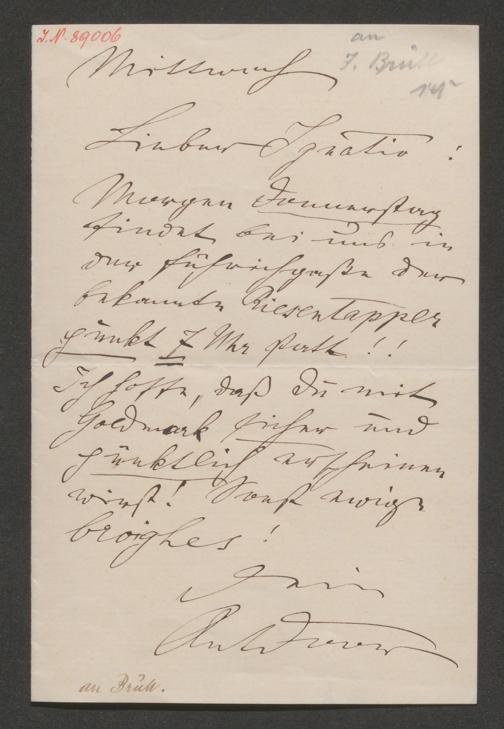 I.N. 89006
an
I. Brüll
Mittwoch
Lieber Ignatio!
Morgen Donnerstag
findet bei uns in
der Führichgaße der
bekannte Riesentapper
punkt 7 Uhr statt!!
Ich hoffe, daß Du mit
Goldmark sicher und
pünktlich erscheinen
wirst! Sonst ewige
broighes!
Dein
Ant Door
an Brüll.